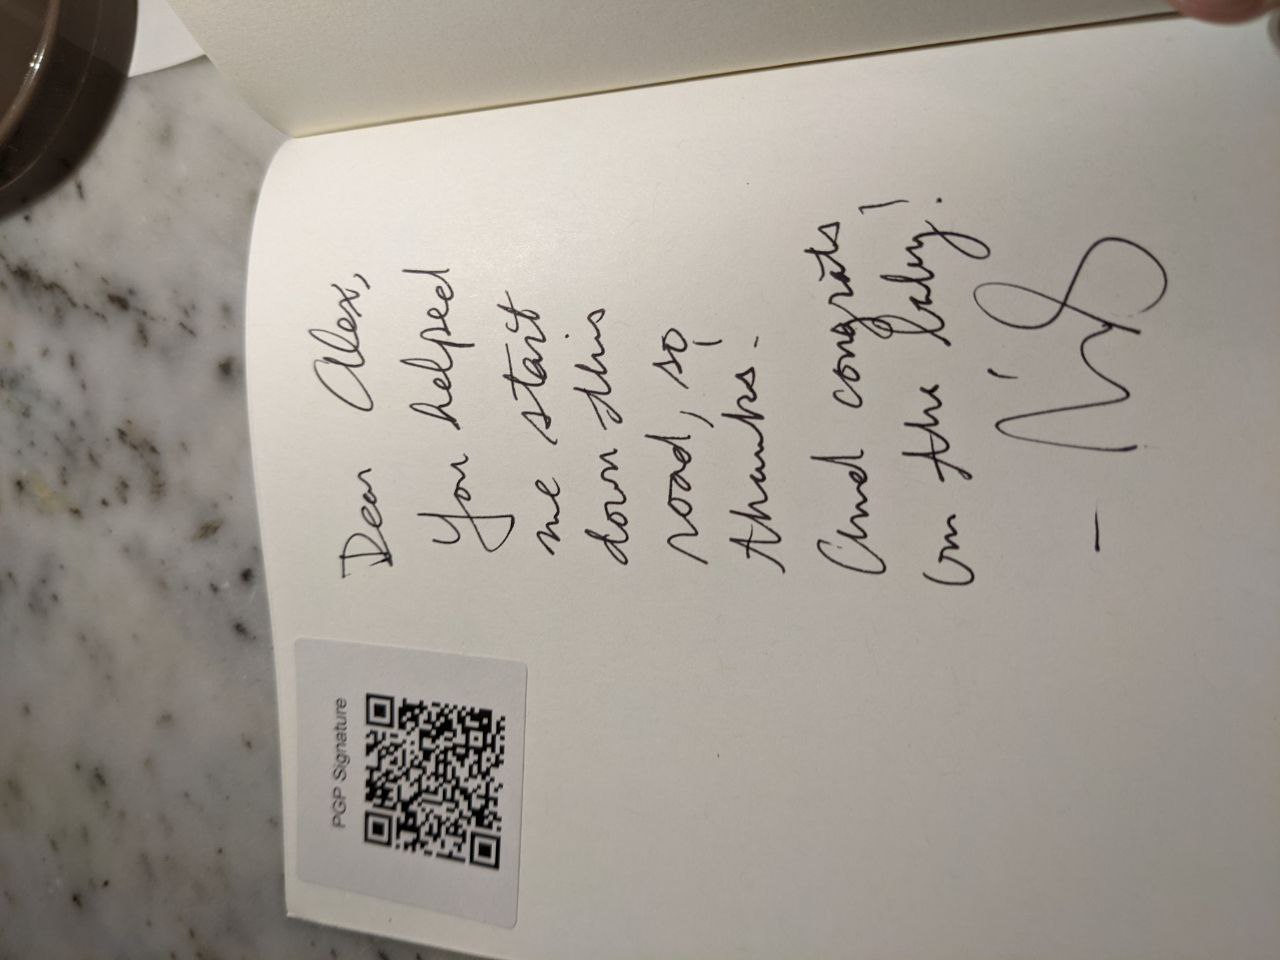 PGP Signature
Dear Alex,
You helped
me start
down this
road, so
thanks.
And congrats
on the baby!